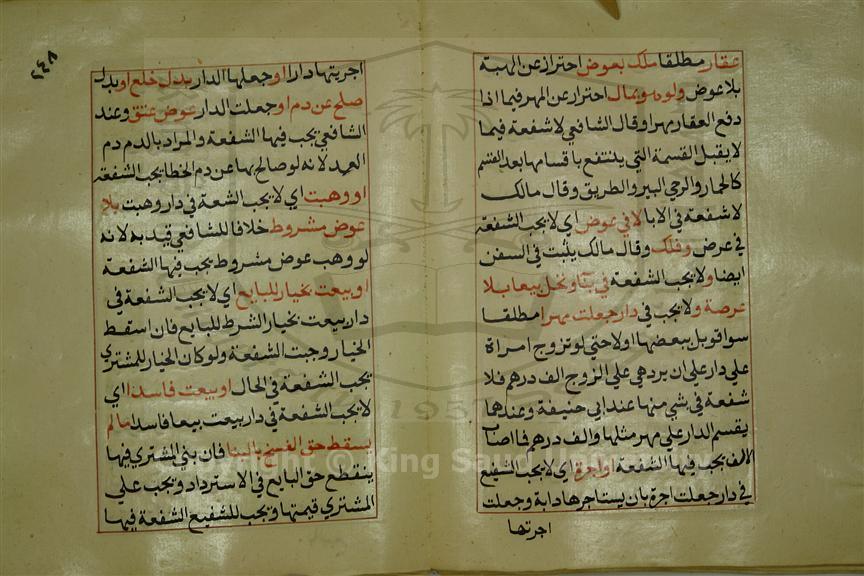 عقار مطلقا ملك بعوض احتراز عن الهبة
بلا عوض ولو هو بمال احتراز عن المهر فيما اذا
دفع العقار مهرا وقال الشافعي لا شفعة فيما
لا يقبل القسمة التي ينتفع باقسامها بعد القسم
كالحمار والرحي البير والطريق وقال مالك
لا شفعة في الابا لا في عرض اي لا يجب الشفعة
في عرض وفلك وقال مالك يثبت في السفن
ايضا ولا يجب الشفعة في بنا ونخل بيعا بلا
عرصة ولا يجب في دار جعلت مهرا مطلقا
سوا قوبل ببعضها او لا حتي لو تزوج امراة
علي دار علي ان يرد هي علي الزوج الف درهم فلا
شفعة في شي منها عند ابي حنيفة وعندهما
يقسم الدار علي مهر مثلها والف درهم فما اصاب
الالف يجب فيها الشفعة او اجرة اي لا يجب الشفيع
في دار جعلت اجرة بان يستاجرها دابة وجعلت
اجرتها
٢٤٨
اجريتها دارا او جعلها الدار بدل خلع او بدل
صلح عن دم او جعلت الدار عوض عتق وعند
الشافعي يجب فيها الشفعة والمراد بالدم دم
العمد لانه لو صالح بها عن دم الخطا يجب الشفعة
او وهبت اي لا يجب الشعة في دار وهبت بلا
عوض مشروط خلافا للشافعي قيد به لانه
لو وهب عوض مشروط يجب فيها الشفعة
او بيعت بخيار للبايع اي لا يجب الشفعة في
دار بيعت بخيار الشرط للبايع فان اسقط
الخيار وجبت الشفعة ولو كان الخيار للمشتري
يجب الشفعة في الحال او بيعت فاسدا اي
لا يجب الشفعة في دار بيعت بيعا فاسدا ما لم
يسقط حق الفسخ بالبنا فان بني المشتري فيها
ينقطع حق البايع في الاسترداد ويجب علي
المشتري قيمتها ويجب للشفيع الشفعة فيها
1957
Copyright © King Saud University